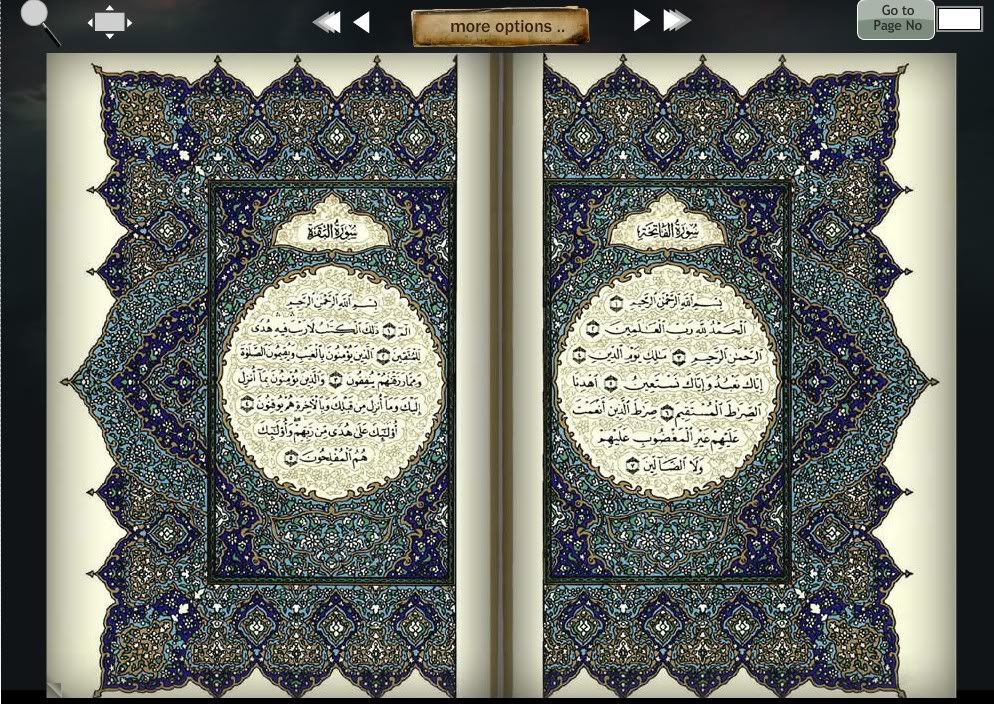 more options ..
Go to
Page No
سُورَةُ الْفَاتِحَةِ
بِسْمِ اللَّهِ الرَّحْمَٰنِ الرَّحِيمِ ١
الْحَمْدُ لِلَّهِ رَبِّ الْعَالَمِينَ ٢
الرَّحْمَٰنِ الرَّحِيمِ ٣ مَالِكِ يَوْمِ الدِّينِ ٤
إِيَّاكَ نَعْبُدُ وَإِيَّاكَ نَسْتَعِينُ ٥ اهْدِنَا
الصِّرَاطَ الْمُسْتَقِيمَ ٦ صِرَاطَ الَّذِينَ أَنْعَمْتَ
عَلَيْهِمْ غَيْرِ الْمَغْضُوبِ عَلَيْهِمْ
وَلَا الضَّالِّينَ ٧
سُورَةُ الْبَقَرَةِ
بِسْمِ اللَّهِ الرَّحْمَٰنِ الرَّحِيمِ
الم ١ ذَٰلِكَ الْكِتَابُ لَا رَيْبَ فِيهِ هُدًى
لِلْمُتَّقِينَ ٢ الَّذِينَ يُؤْمِنُونَ بِالْغَيْبِ وَيُقِيمُونَ الصَّلَاةَ
وَمِمَّا رَزَقْنَاهُمْ يُنْفِقُونَ ٣ وَالَّذِينَ يُؤْمِنُونَ بِمَا أُنْزِلَ
إِلَيْكَ وَمَا أُنْزِلَ مِنْ قَبْلِكَ وَبِالْآخِرَةِ هُمْ يُوقِنُونَ ٤
أُولَٰئِكَ عَلَىٰ هُدًى مِنْ رَبِّهِمْ وَأُولَٰئِكَ
هُمُ الْمُفْلِحُونَ ٥